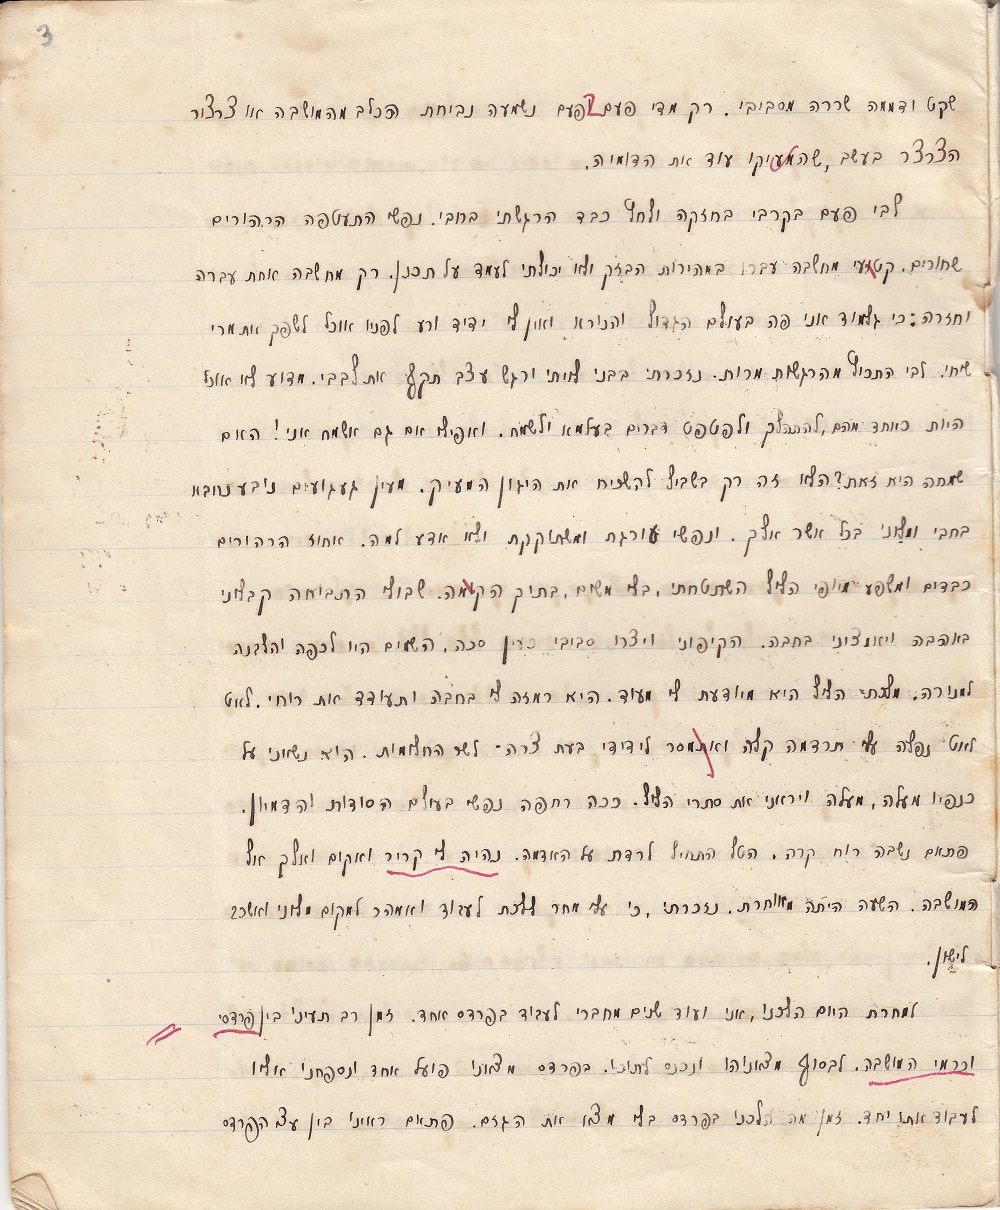 3
שקט ודממה שררה מסביבי. רק מדי פעם לפעם נשמעה נביחת הכלב מהמושבה או צרצור
הצרצר בעשב, שהמעיקו עוד את הדומיה.
לבי פעם בקרבי בחזקה ולחץ כבד הרגשתי ברובי. נפשי התעטפה הרהורים
שחורים. קטעי מחשבה עברו במהירות הבזק ולא יכולתי לעמד על תכנן. רק מחשבה אחת עברה
וחזרה: כי גלמוד אני פה בעולם הגדול והנורא ואין לי ידיד ורע לפניו אוכל לשפך את מרי
שיחי. לבי התכוץ מהרגשות מרות. נזכרתי בבני לויתי ורגש עצב תקף את לבבי. מדוע לא אוכל
היות כאחד מהם, להתהלך ולפטפט דברים בעלמא ולשמח. ואפילו אם גם אשמח אני! האם
שמחה היא זאת? הלא זה רק בשביל להשכיח את היגון המעיק. מעין געגועים
בחבי ומלוני בכל אשר אלך. ונפשי עורגת ומשתוקקת ולא אדע למה. אחוז הרהורים
כבדים ומשפע מיופי הליל השתטחתי, בלי משים, בתוך הקמה. שבולי התבואה קבלוני
באהבה ויאמצוני בחבה. הקיפוני ויצרו סביבי כעין סכה, השמים היו לכפה והלבנה
למנורה. מלכת הליל היא מיודעת לי מעוד. היא רמזה לי בחבה ותעודד את רוחי. לאט
לאט נפלה עלי תרדמה קלה ואתמסר לידידי בעת צרה - לשר החלומות. הוא נשאני על
כנפיו מעלה, מעלה ויראני את סתרי הליל. ככה רחפה נפשי בעולם הסודות והדמיון.
פתאם נשבה רוח קרה. הטל התחיל לרדת על האדמה. נהיה לי קריר ואקום ואלך אל
המושבה. השעה היתה מאוחרת. נזכרתי, כי עלי מחר ללכת לעבוד ואמהר למקום מלוני ואשכב
לישון.
למחרת היום הלכנו, אני ועוד שנים מחברי לעבוד בפרדס אחד. זמן רב תעינו בין פרדסי
וכרמי המושבה. לבסוף מצאנוהו ונכנס לתוכו. בפרדס מצאנו פועל אחד ונספחנו אליו
לעבוד אתו יחד. זמן מה הלכנו בפרדס בלי מצא את הגזם. פתאם ראינו בין עצי הפרדס